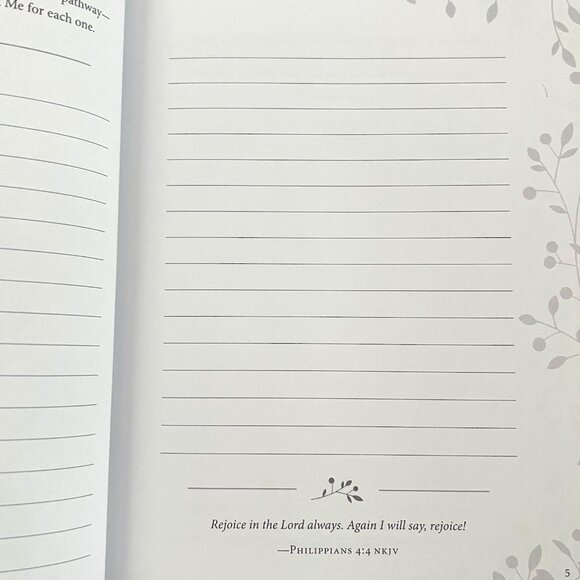 pathway—
Me for each one.
Rejoice in the Lord always. Again I will say, rejoice!
—Philippians 4:4 NKJV
5